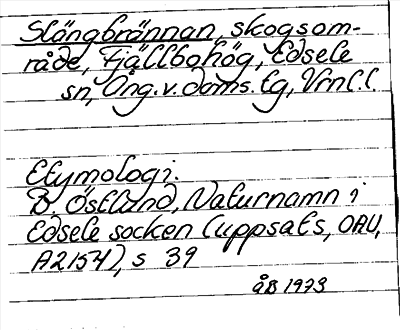 Slängbrännan, skogsom-
råde, Fjällbohög, Edsele
sn, Ång. v. doms. lg, Vrnl.l.
Etymologi:
B. Östlund, Naturnamn i
Edsele socken (uppsats, OAU,
A2154), s 39
åB 1973